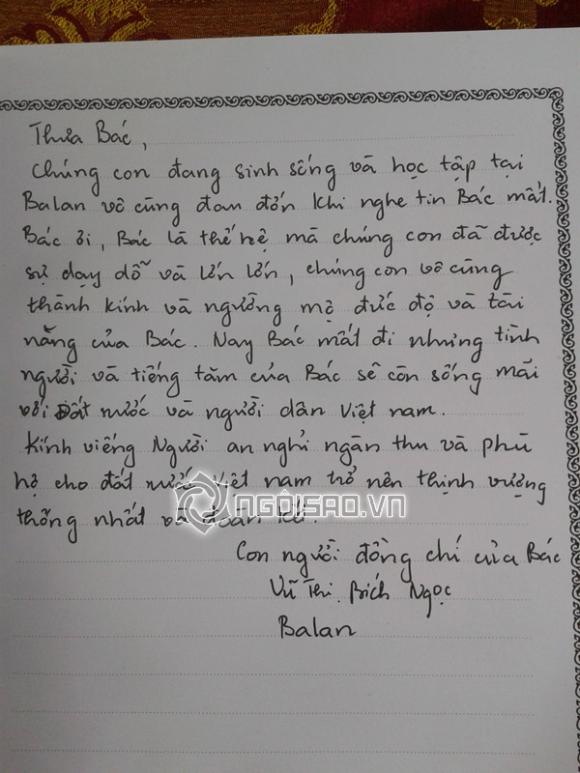 Thưa Bác,
Chúng con đang sinh sống và học tập tại
Balan vô cùng đau đớn khi nghe tin Bác mất.
Bác ơi, Bác là thế hệ mà chúng con đã được
sự dạy dỗ và lớn lớn, chúng con vô cùng
thành kính và ngưỡng mộ đức độ và tài
năng của Bác. Nay Bác mất đi nhưng tình
người và tiếng tăm của Bác sẽ còn sống mãi
với Đất nước và người dân Việt nam.
Kính viếng Người an nghỉ ngàn thu và phù
hộ cho đất nước Việt nam trở nên thịnh vượng
thống nhất và đoàn kết.
NGÔISAO.VN
Con người đồng chí của Bác
Vũ Thị Bích Ngọc
Balan